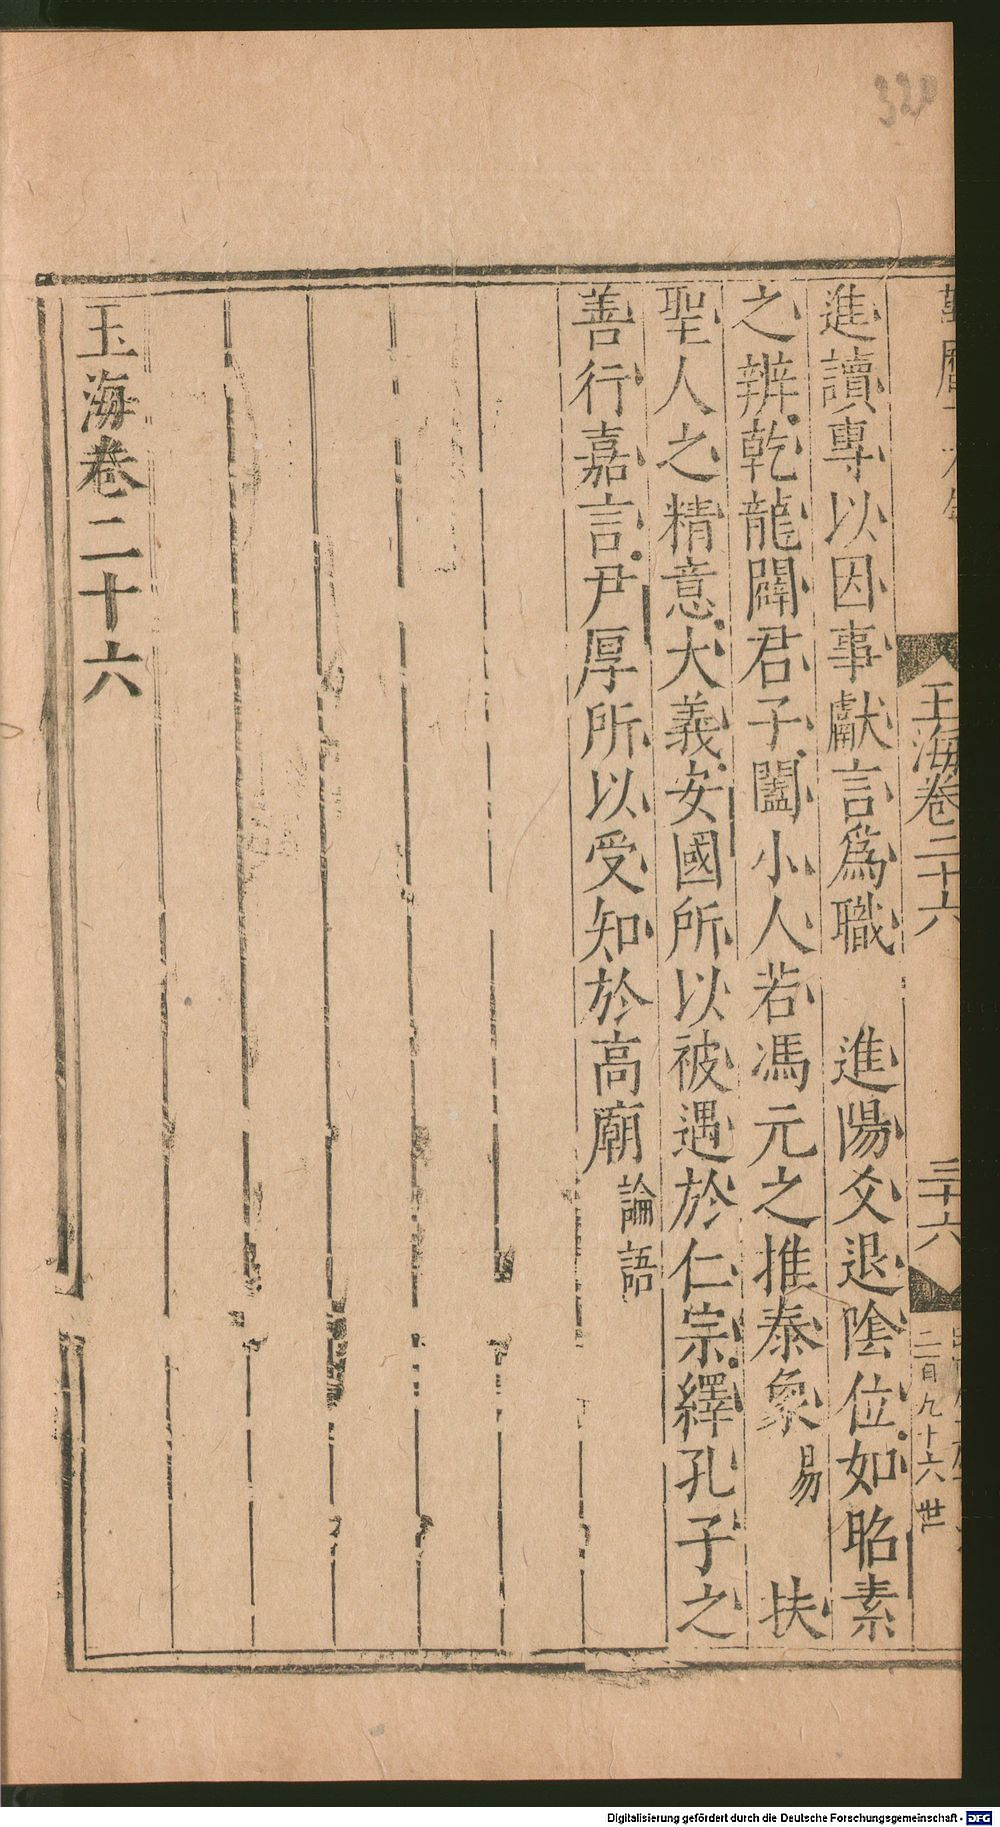 320
玉海卷二十六
三十六
二百九十六
世
進讀專以因事獻言爲職　進陽爻退陰位如昭素
之辨乾龍闢君子闔小人若馮元之推泰象易　扶
聖人之精意大義安國所以被遇於仁宗繹孔子之
善行嘉言尹厚所以受知於高廟論語
玉海卷二十六
Digitalisierung gefördert durch die Deutsche Forschungsgemeinschaft - DFG